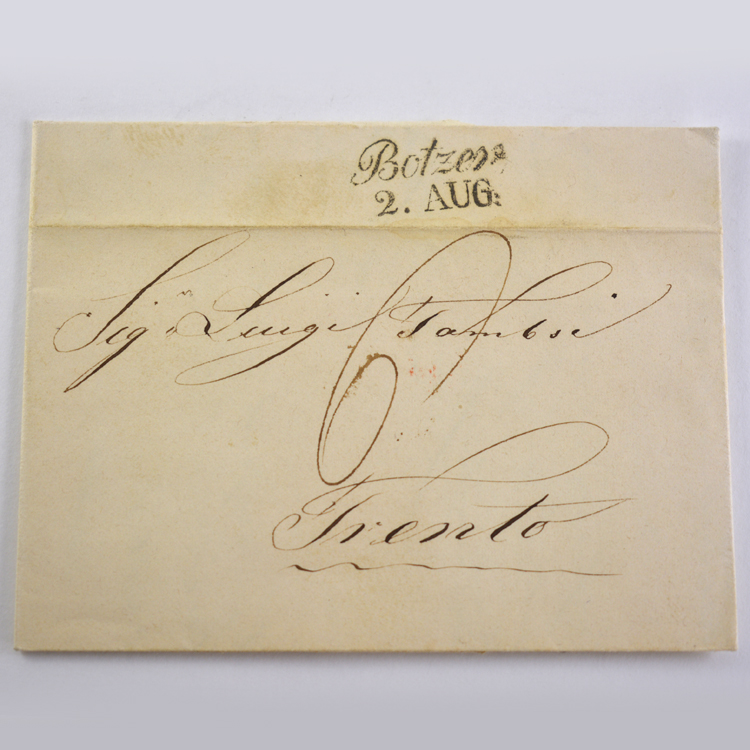 Botzen
2. AUG.
Sig.r Luigi Tambosi
6
Trento